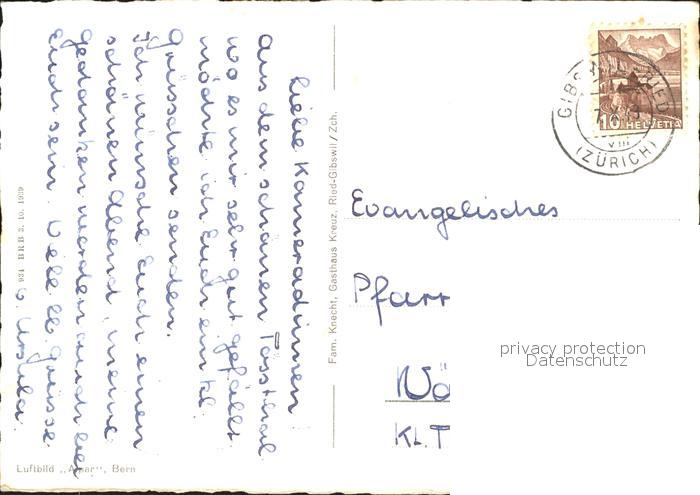 Liebe Kameradinnen!
aus dem schönen Tösstal
wo es mir sehr gut gefällt
möchte ich Euch ein kl.
Grüsschen senden.
Ich wünsche Euch einen
schönen Abend, meine
gedanken werden auch bei
Euch sein. Viele lb. Grüsse
Ursula.
934 BRB 3. 10. 1939
Luftbild „Alpar“, Bern
Fam. Knecht, Gasthaus Kreuz, Ried-Gibswil/Zch.
GIBSWIL-RIED
VIII
(ZÜRICH)
10 HELVETIA
Evangelisches
Pfarr
Wä
Kt. T
privacy protection
Datenschutz